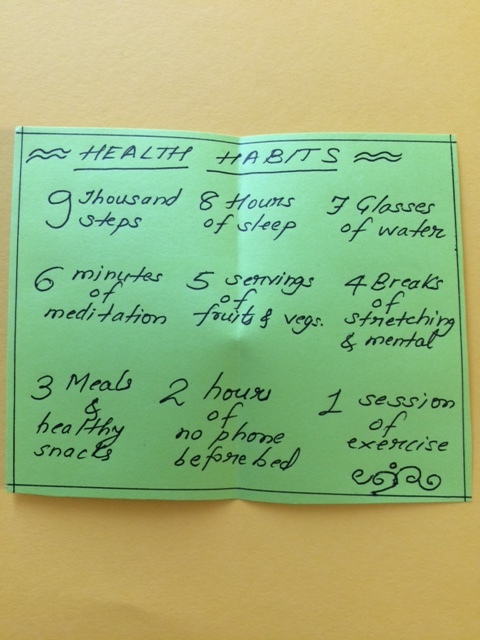 HEALTH HABITS
9 Thousand steps
8 Hours of sleep
7 Glasses of water
6 minutes of meditation
5 servings of fruits & vegs.
4 Breaks of stretching & mental
3 Meals & healthy snacks
2 hours of no phone before bed
1 session of exercise